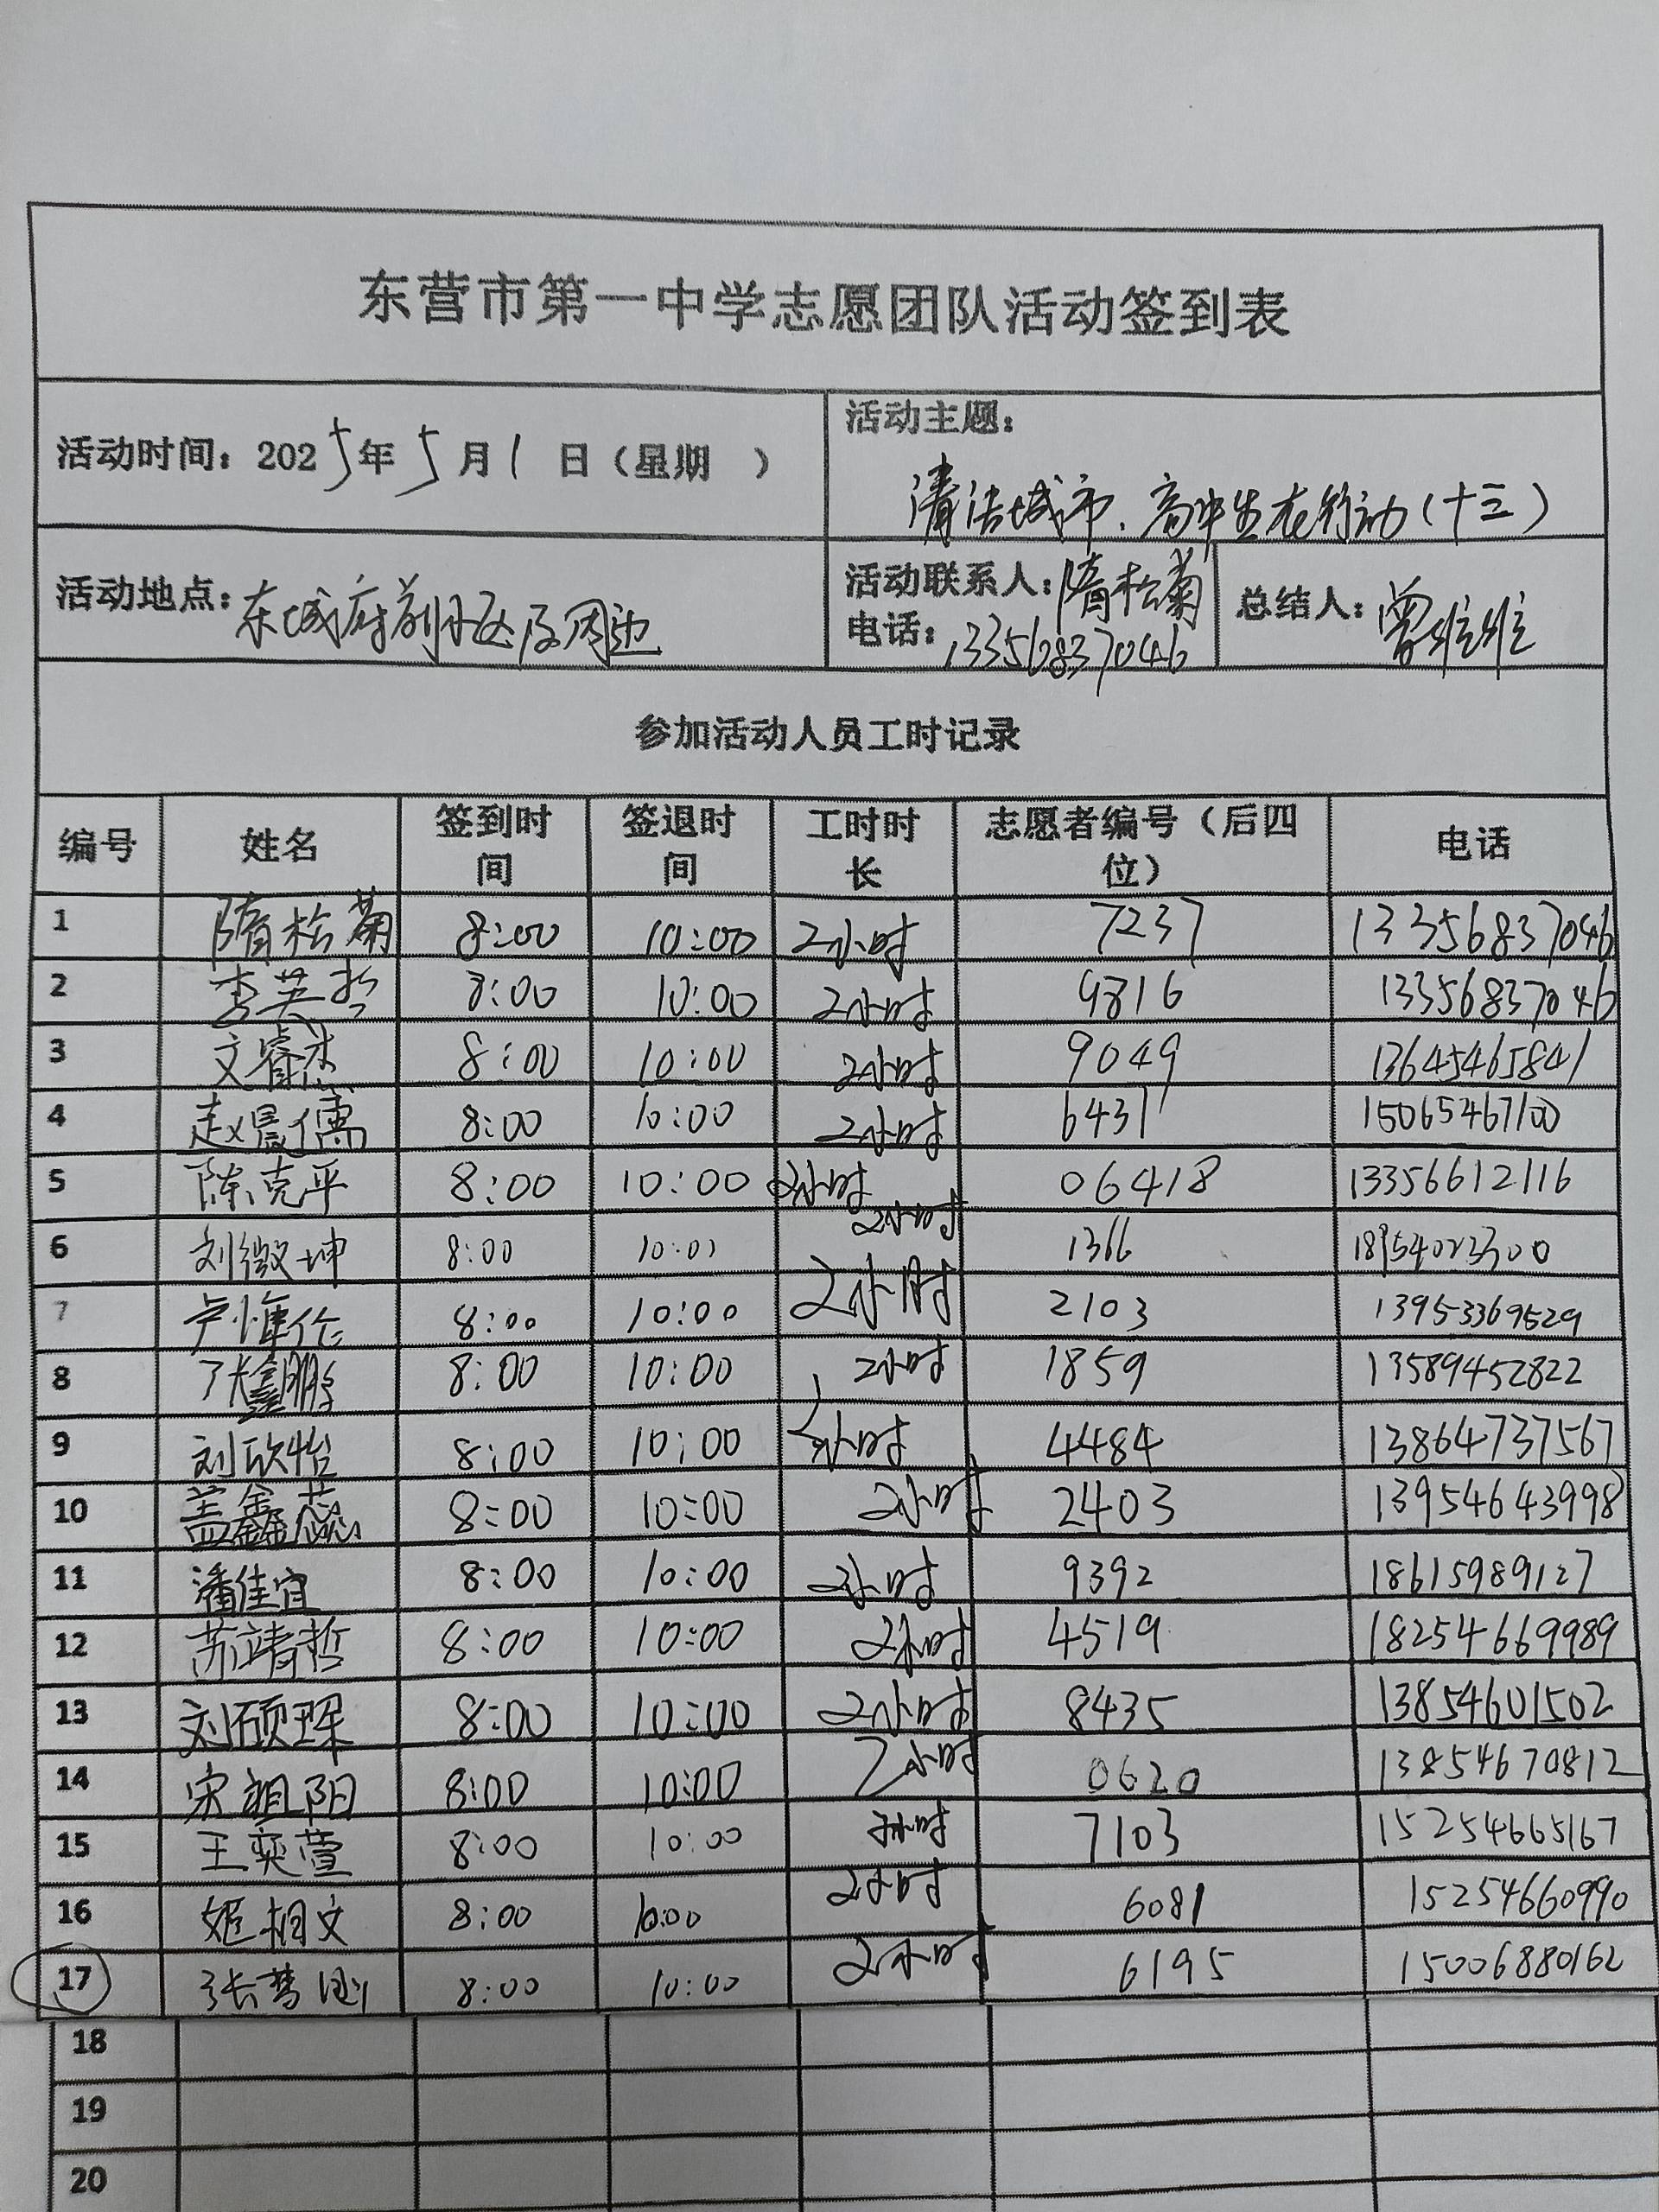 东营市第一中学志愿团队活动签到表
活动时间：2025年5月1日（星期　）
活动主题：
清洁城市、高中生在行动（十三）
活动地点：东城府前小区及周边
活动联系人：隋松菊
电话：13356837046
总结人：曾维维
参加活动人员工时记录
编号 姓名 签到时间 签退时间 工时时长 志愿者编号（后四位） 电话
1 隋松菊 8:00 10:00 2小时 7237 13356837046
2 李英哲 8:00 10:00 2小时 9816 13356837046
3 文睿杰 8:00 10:00 2小时 9049 13645465841
4 赵晨儒 8:00 10:00 2小时 6431 15065467100
5 陈克平 8:00 10:00 2小时 06418 13356612116
6 刘微坤 8:00 10:00 2小时 1366
7 卢惟伦 8:00 10:00 2小时 2103 13953369529
8 张鑫鹏 8:00 10:00 2小时 1859 13589452822
9 刘欣怡 8:00 10:00 2小时 4484 13864737567
10 盖鑫蕊 8:00 10:00 2小时 2403 13954643998
11 潘佳宜 8:00 10:00 2小时 9392 18615989127
12 苏靖哲 8:00 10:00 2小时 4519 18254669989
13 刘硕琛 8:00 10:00 2小时 8435 13854601502
14 宋祖阳 8:00 10:00 2小时 0620 13854670812
15 王奕萱 8:00 10:00 2小时 7103 15254665167
16 姬相文 8:00 10:00 2小时 6081 15254660990
17 8:00 10:00 2小时 6195 15006880162
18
19
20